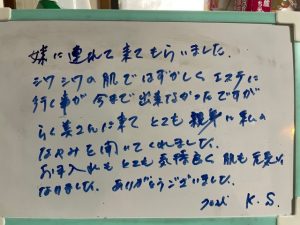 妹に連れて来てもらいました。
シワシワの肌ではずかしくエステに
行く事が今まで出来なかったですが
らく美さんに来て とても 親身に 私の
なやみを聞いてくれました。
お手入れもとても気持良く 肌も元気に
なりました。ありがとうございました。
K.S.